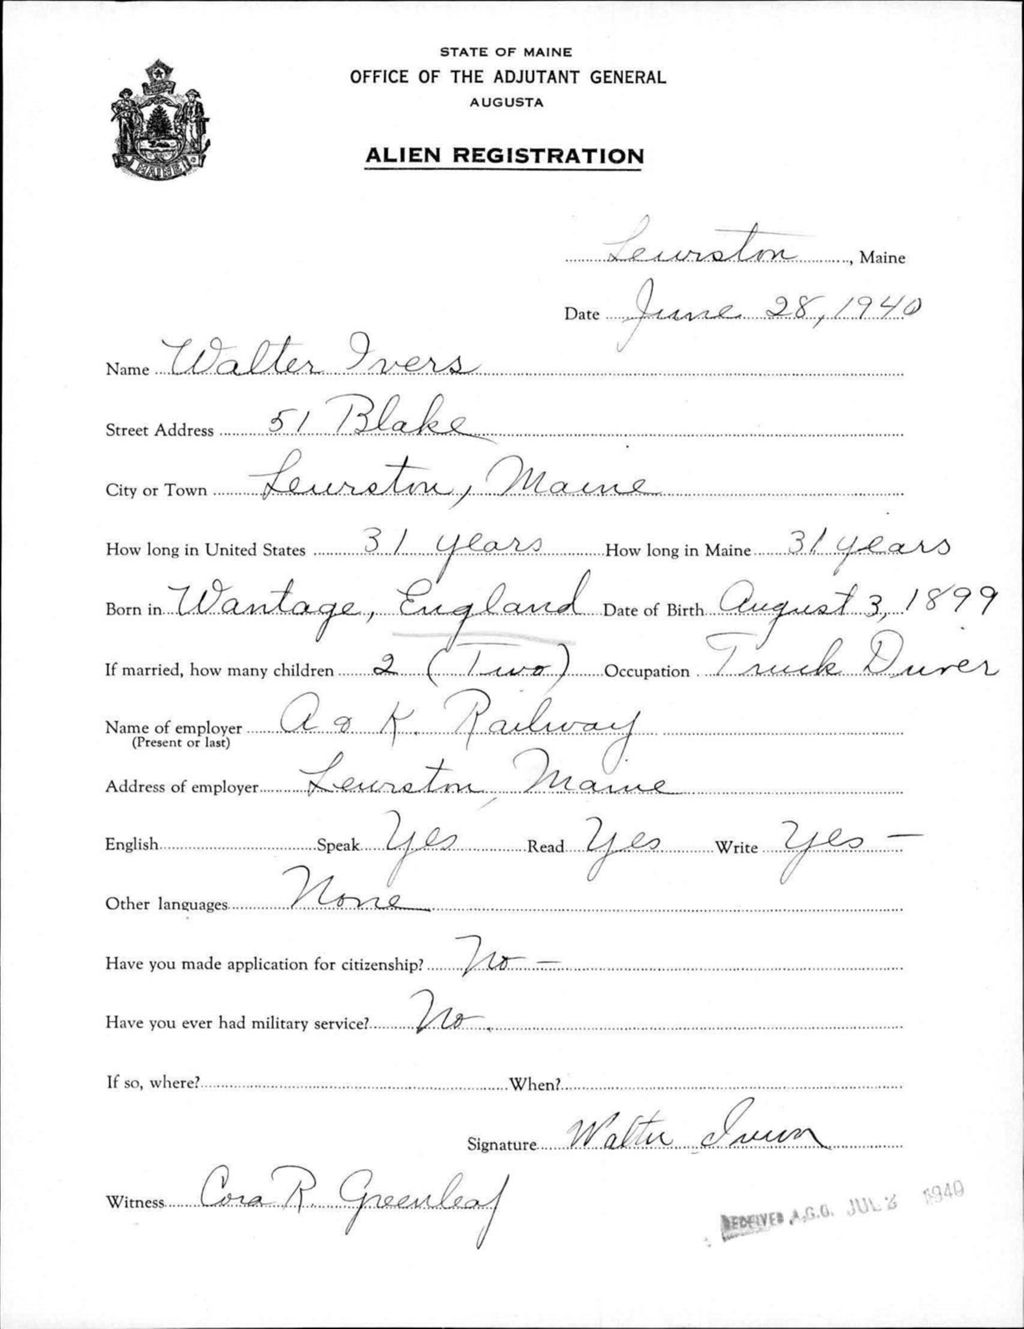 STATE OF MAINE
OFFICE OF THE ADJUTANT GENERAL
AUGUSTA
MAINE
ALIEN REGISTRATION
Lewiston, Maine
Date June 28, 1940
Name Walter Ivers
Street Address 51 Blake
City or Town Lewiston, Maine
How long in United States 31 years How long in Maine 31 years
Born in Wantage, England Date of Birth August 3, 1899
If married, how many children 2 (Two) Occupation Truck Driver
Name of employer A & K. Railway
(Present or last)
Address of employer Lewiston, Maine
English Speak Yes Read Yes Write Yes –
Other languages None
Have you made application for citizenship? No –
Have you ever had military service? No.
If so, where? When?
Signature Walter
Witness Cora R. Greenleaf
RECEIVED A.G.O. JUL 2 1940